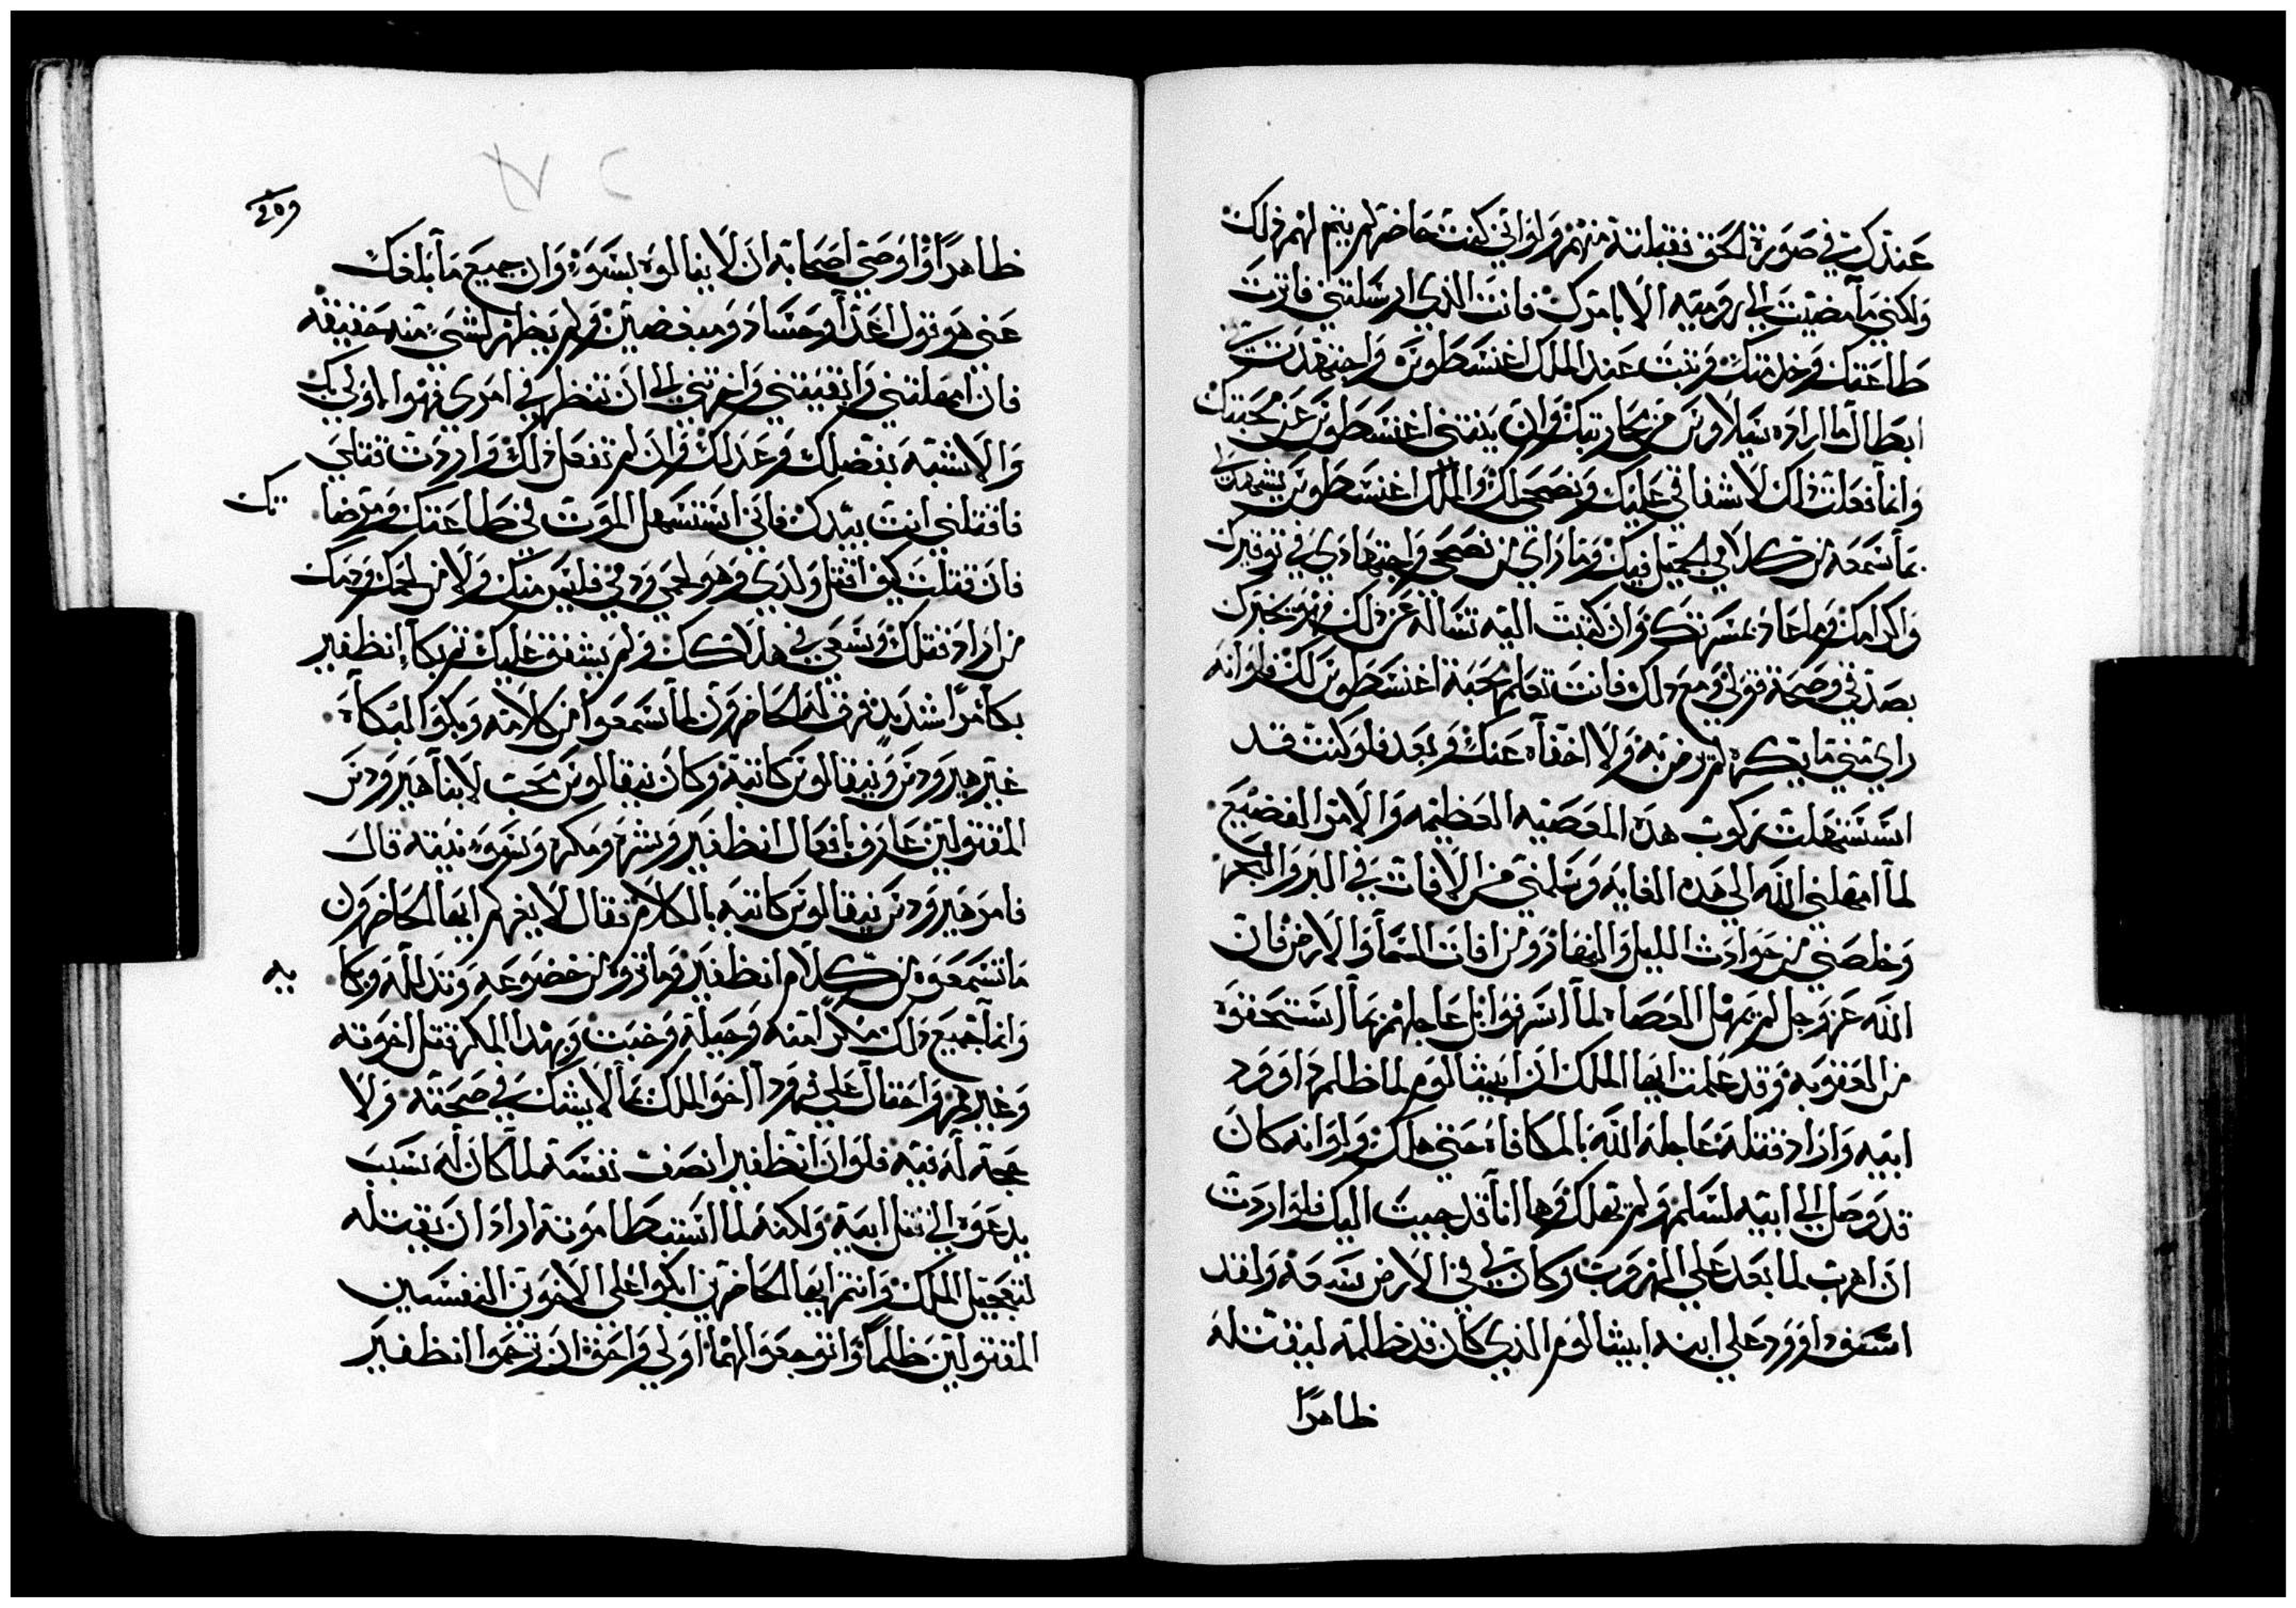 عندك في صورة الحق فقبلته منهم ولو اني كنت حاضر لم يتم لهم ذلك
ولكني ما مضيت الي روميه الا بامرك فانت الذي ارسلتني فاثرت
طاعتك وخدمتك ونبت عند الملك اغنسطوس واجتهدت في
ابطال ما اراده سيلاوس من محاربتك وان يثنني اغنسطوس عن محبتك
وانما فعلت ذلك لاشفاقي عليك ونصحي لك والملك اغنسطوس يشهد لي
بما سمعه من كلامي الجميل فيك وما راي من نصحي واجتهادي في توقيرك
واكرامك وما عاد بمسرتك وان كتبت اليه تساله عن ذلك فهو يخبرك
بصدقي وصحة قولي ومع ذلك فانت تعلم محبة اغنسطوس لك فلو انه
راي مني ما يكره لم يرض به ولا اخفاه عنك وبعد فلو كنت قد
استسهلت ركوب هذه المعصيه العظيمه والامر الفضيع
لما امهلني الله الي هذه الغايه وسلمني من الافات في البر والبحر
وخلصني من حوادث الليل والنهار ومن افات السما والارض فان
الله عز وجل لم يمهل العصاه لما اسرفوا بل عاجلهم بما استحقوه
من العقوبه وقد علمت ايها الملك ان ابيشالوم لما ظلم داوود
ابيه واراد قتله عاجله الله بالمكافاه حتي هلك ولو انه كان
قد وصل الي ابيه لسلم ولم يهلك وها انا قد جيت اليك فلو اردت
ان اهرب لما بعد علي الهروب وكان لي في الارض سعه ولقد
اشفق داوود علي ابنه ابيشالوم الذي كان قد ظلمه ليقتله
ظاهرًا
ظاهرًا واوصي اصحابه ان لا ينالوه بسوء وان جميع ما بلغك
عني هو قول اعدا وحساد ومبغضين ولم يظهر لشي منه حقيقه
فان امهلتني وابقيتني واخرتني الي ان تنظر في امري فهو اولي بك
والاشبه بفضلك وعدلك وان لم تفعل ذلك واردت قتلي
فاقتلني انت بيدك فاني استسهل الموت في طاعتك ومرضاتك
فان قتلت كيف اقتل ولدي وهو لحمي ودمي فليس منك ولا من لحمك ودمك
من اراد قتلك وسعي في هلاكك ولم يشفق عليك ثم بكا انظفير
بكا مرا شديد فرق له الحاضرون لما سمعوا من كلامه وبكوا لبكاه
غير هيرودس ونيقالوس كاتبه وكان نيقالوس محب لابنا هيرودس
المقتولين عارف بافعال انظفير وشره ومكره وسوء نيته قال
فامر هيرودس نيقالوس كاتبه بالكلام فقال لا يغركم ايها الحاضرون
ما تسمعوه من كلام انظفير وما تروه من خضوعه وتذلله وبكايه
وانما جميع ذلك مكرا منه وحيلة وخبث وبهذا المكر قتل اخوته
وغيرهم واحتال علي فرودا اخو الملك بما لا يشك في صحته ولا
حجة له فيه فلو ان انظفير انصف نفسه لما كان له سبب
يدعوه الي قتل ابيه ولكنه لما استبطا موته اراد ان يقتله
لتعجيل الملك وانتم ايها الحاضرين ابكوا علي الاخوين النفسين
المقتولين ظلمًا وتوجعوا لهما اولي واحق ان ترحموا انظفير